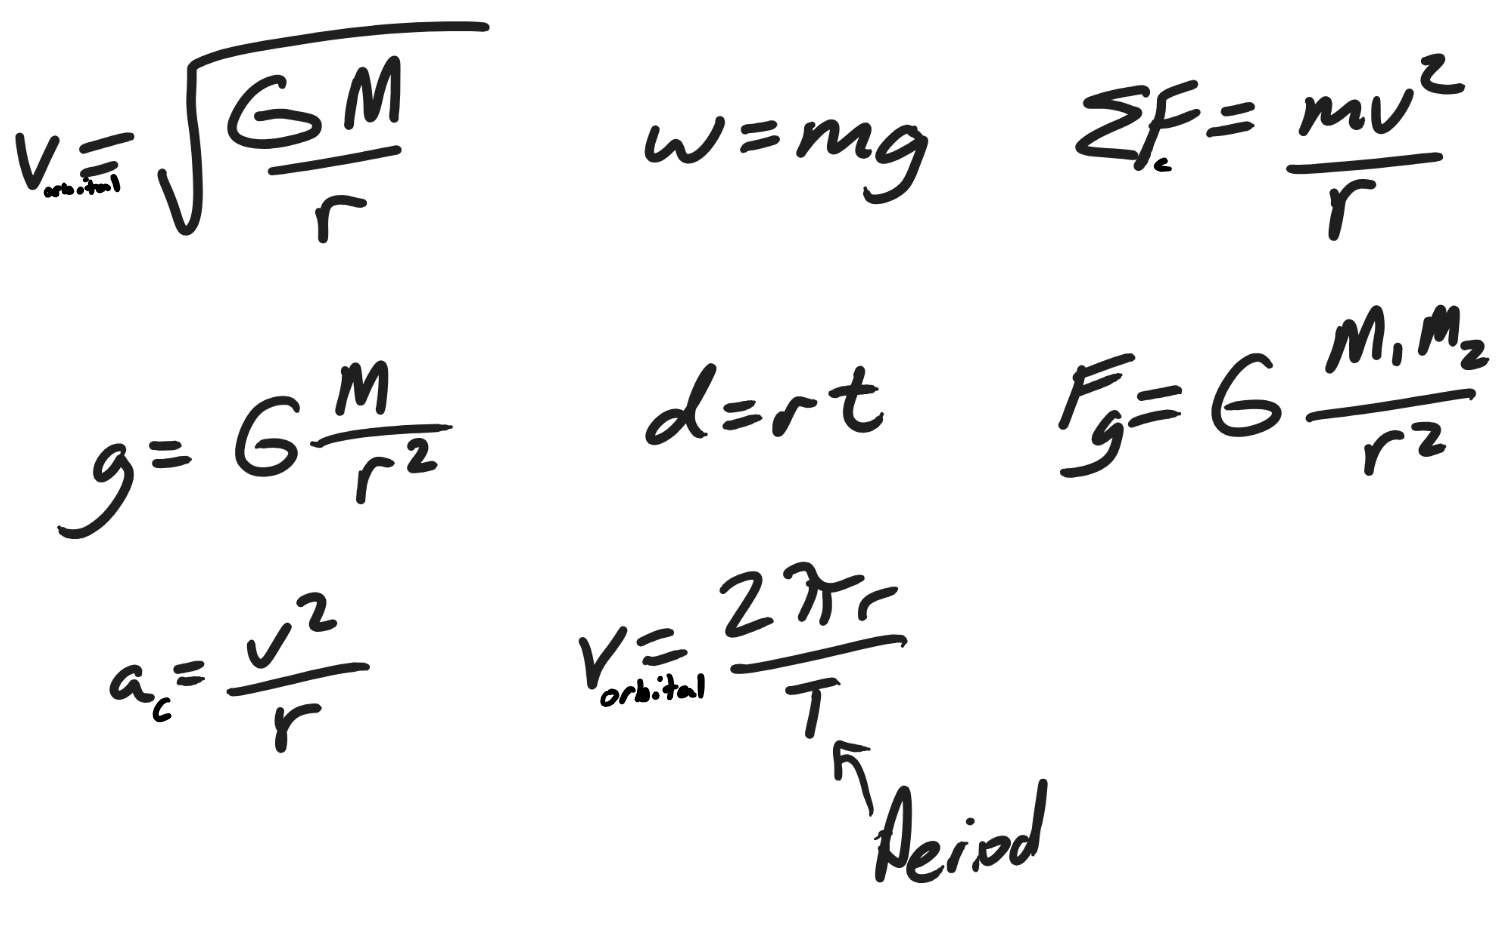 v_orbital = √(GM/r)    w = mg    ΣF_c = mv²/r
g = G M/r²    d = rt    F_g = G M₁M₂/r²
a_c = v²/r    v_orbital = 2πr/T
Period